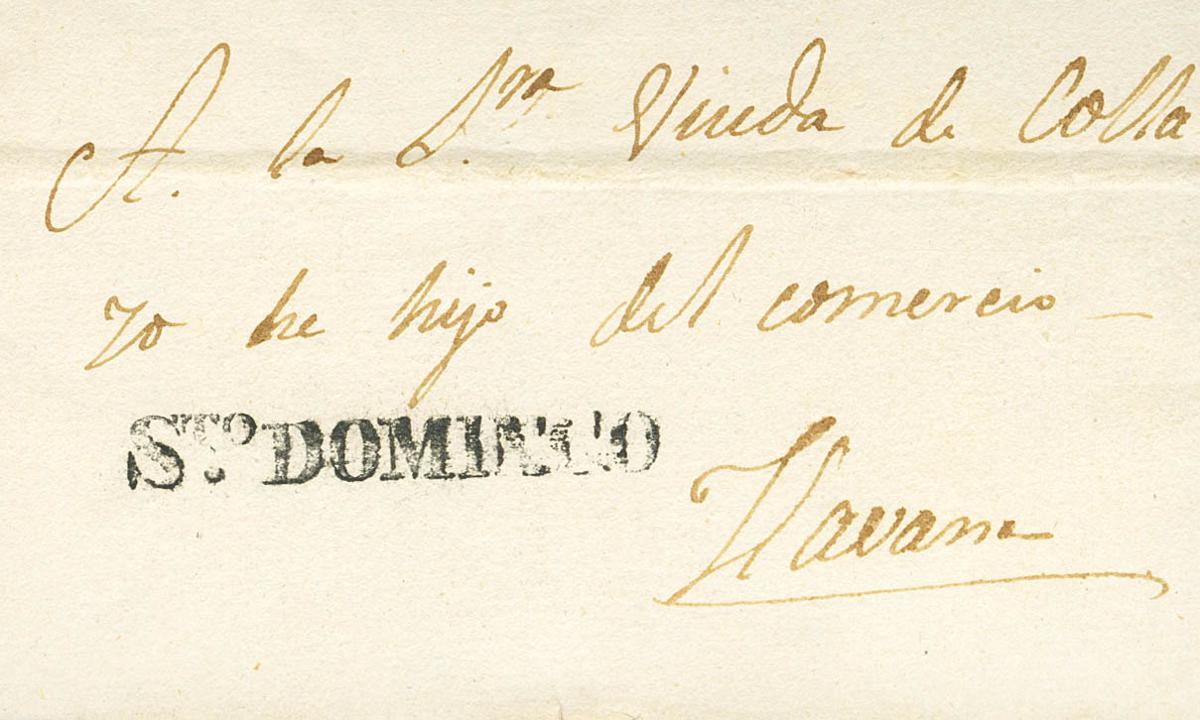 A. la S.ra Viuda de Colla
zo he hijo del comercio —
STº DOMINGO
Havana